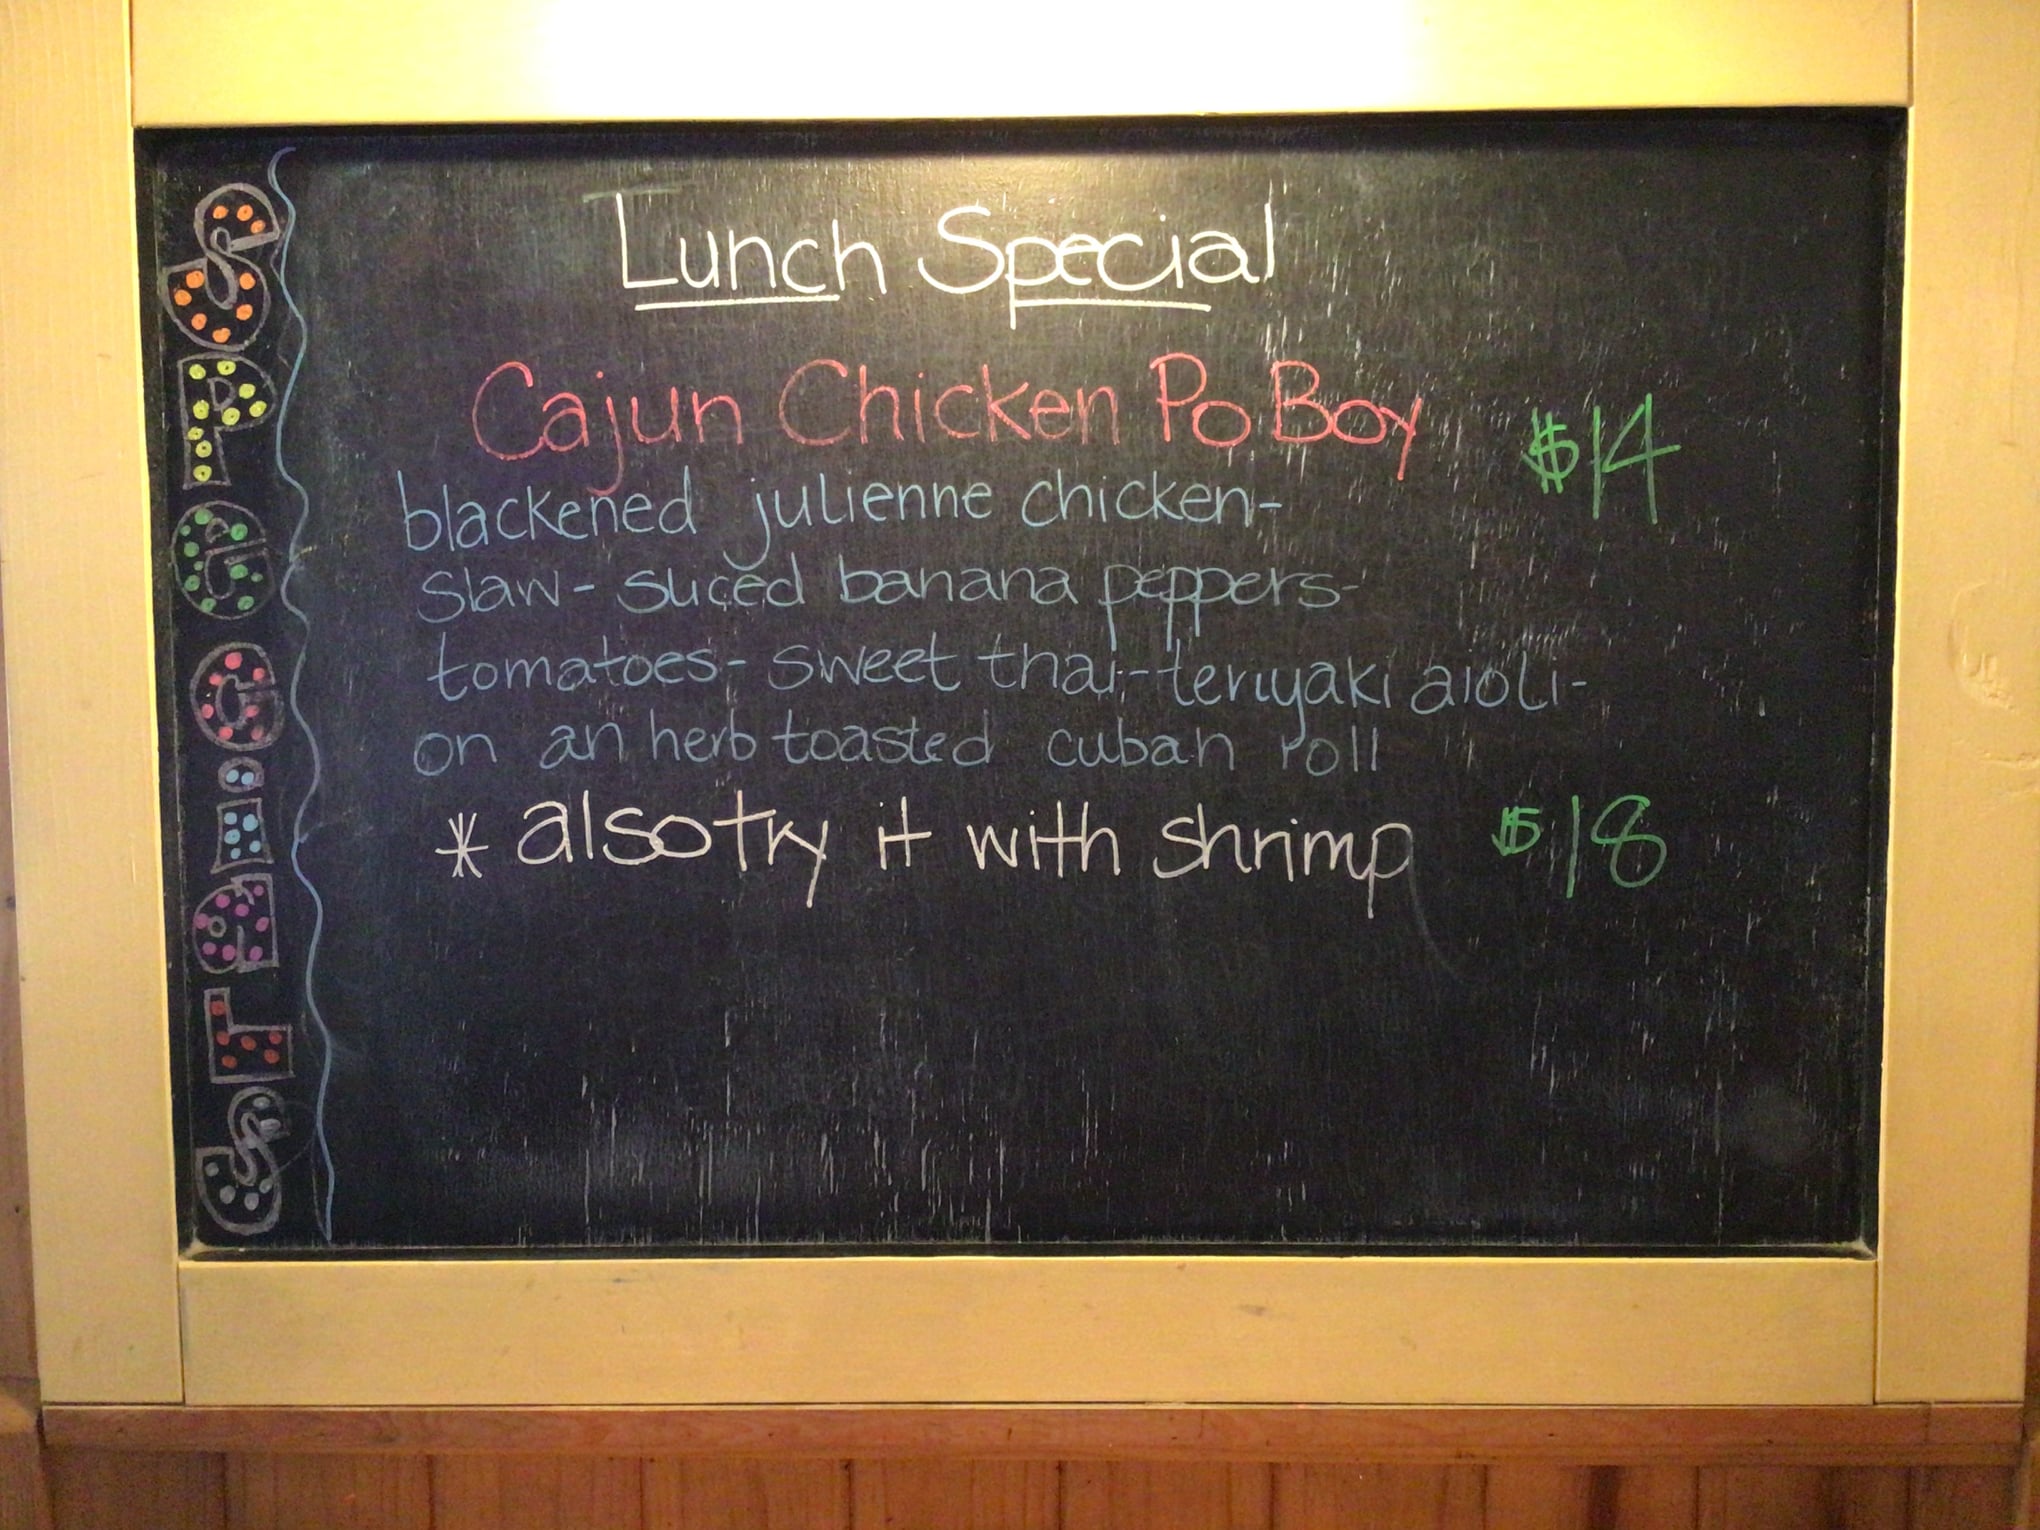 SPeCiaLS
Lunch Special
Cajun Chicken Po Boy $14
blackened julienne chicken-
slaw- sliced banana peppers-
tomatoes- sweet thai-teriyaki aioli-
on an herb toasted cuban roll
* also try it with shrimp $18